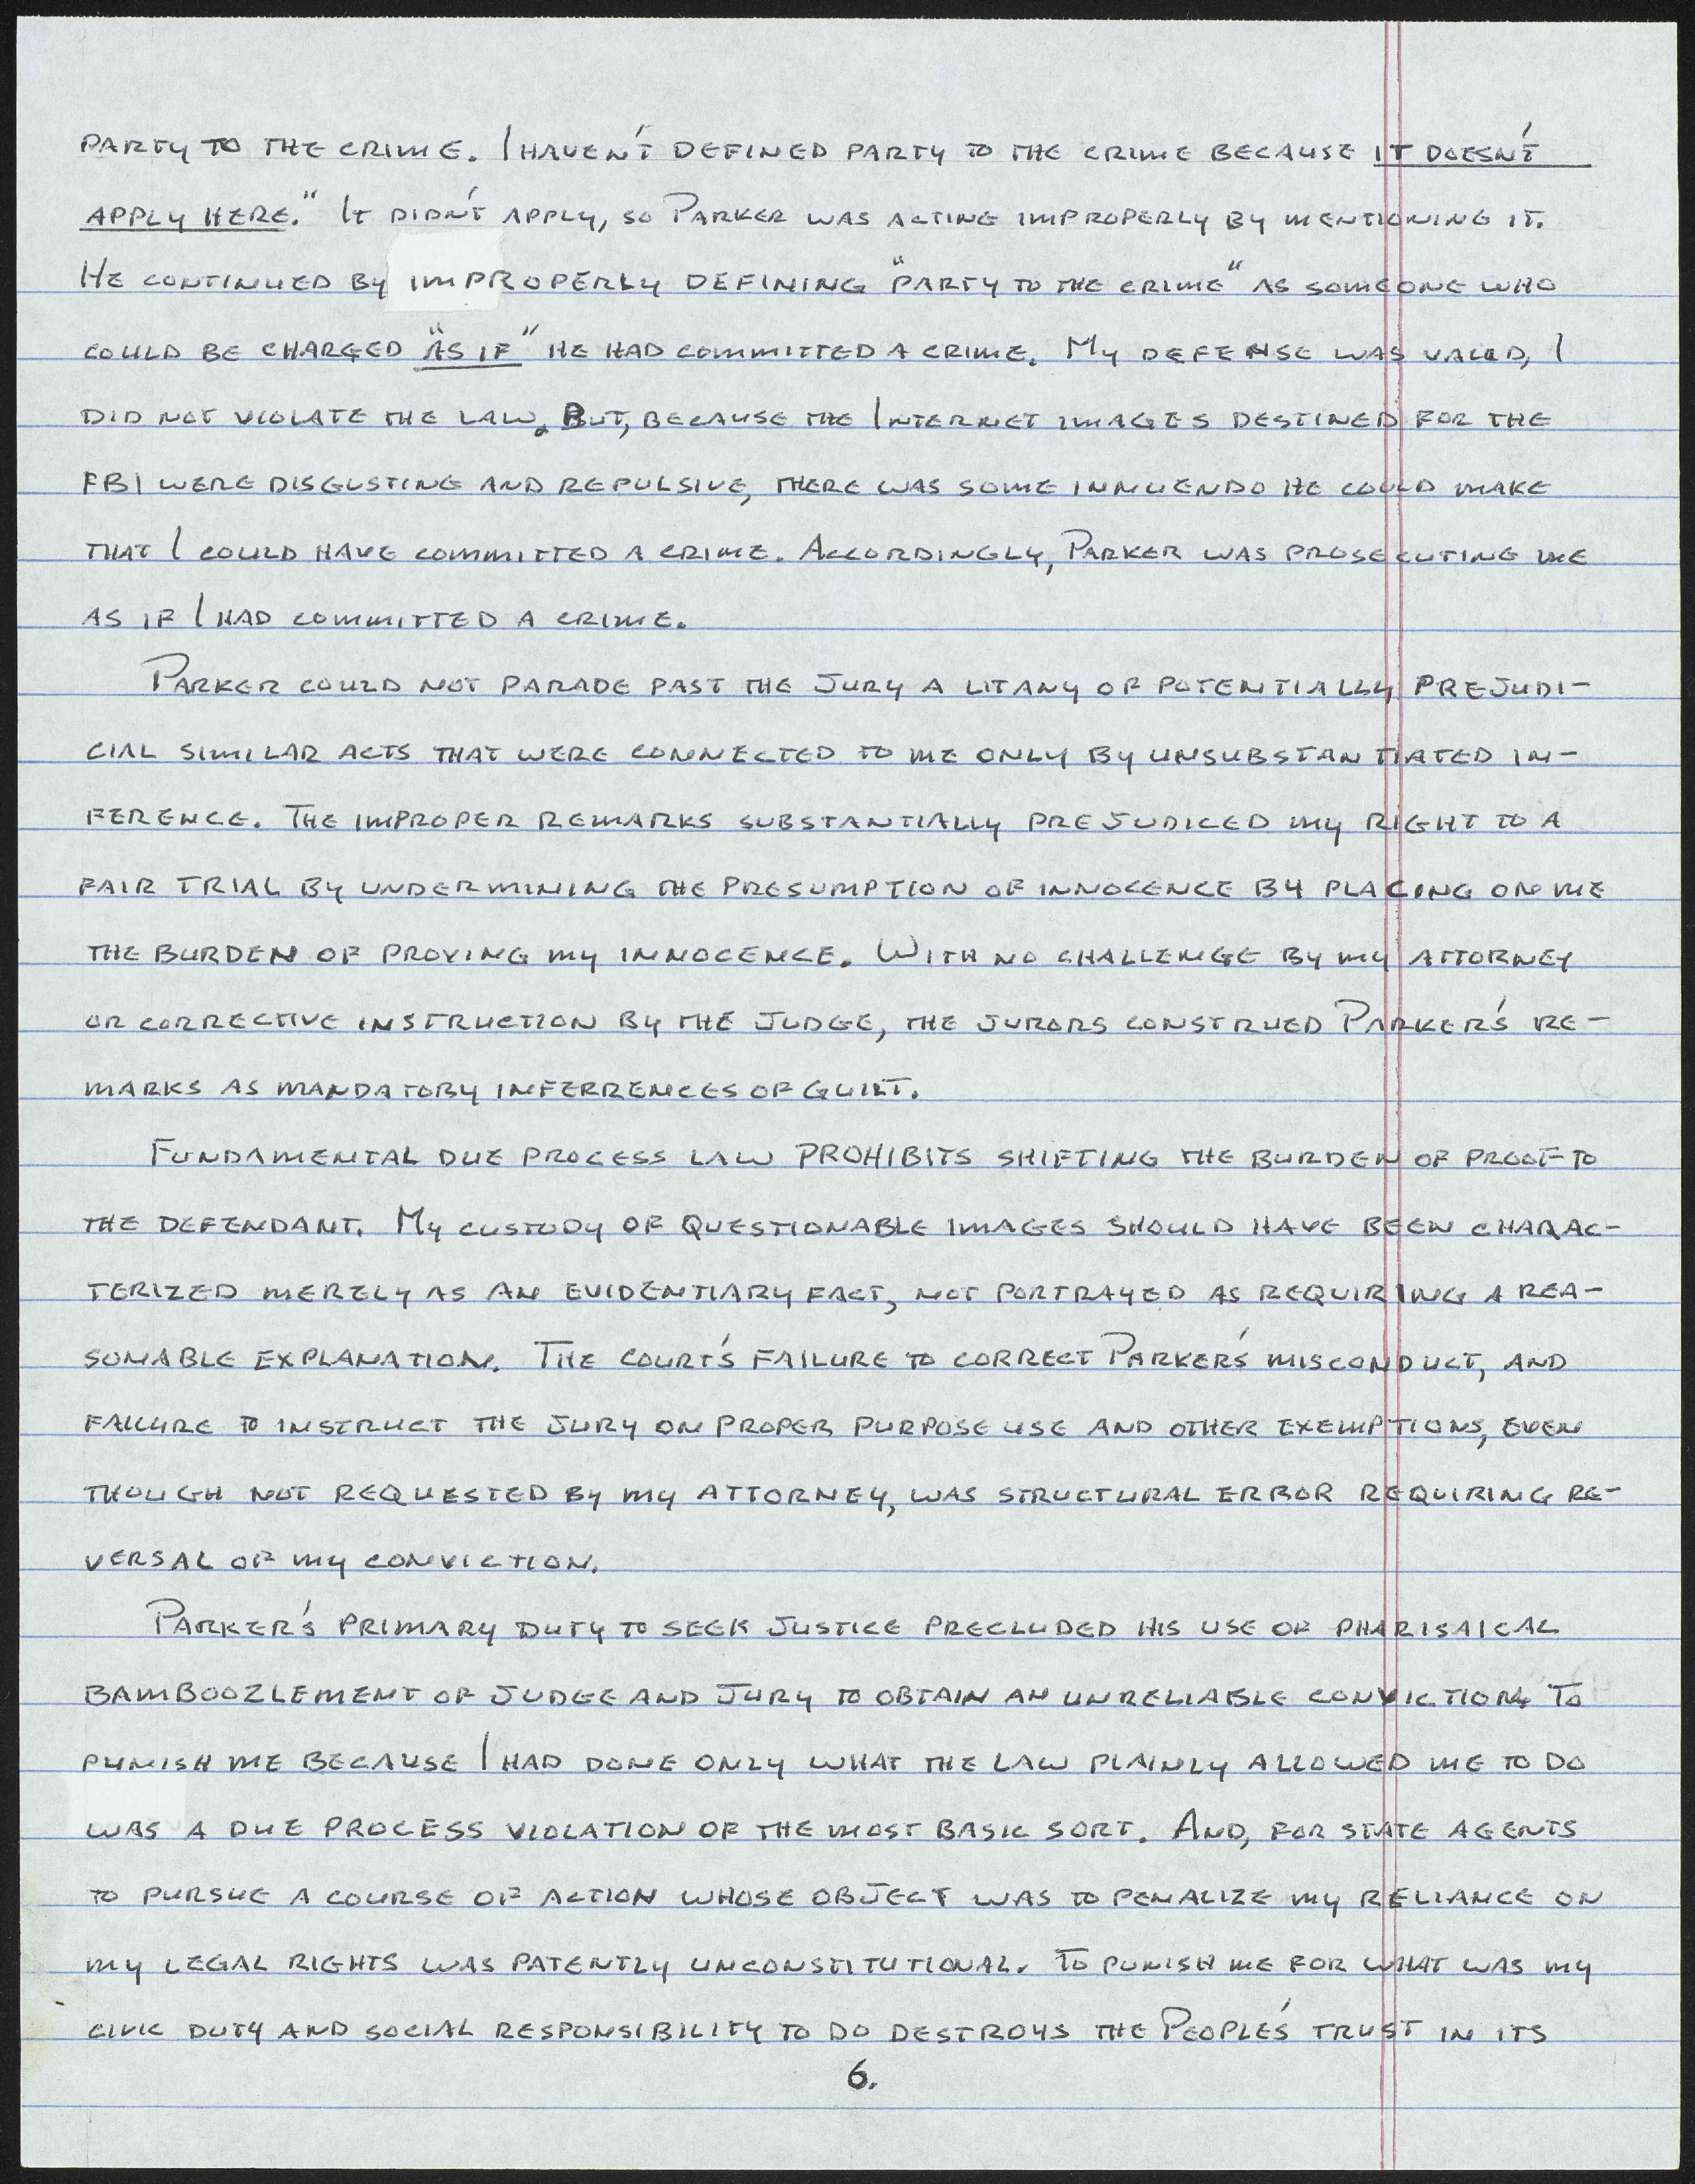 PARTY TO THE CRIME. I HAVEN'T DEFINED PARTY TO THE CRIME BECAUSE IT DOESN'T
APPLY HERE." IT DIDN'T APPLY, SO PARKER WAS ACTING IMPROPERLY BY MENTIONING IT.
HE CONTINUED BY IMPROPERLY DEFINING "PARTY TO THE CRIME" AS SOMEONE WHO
COULD BE CHARGED "AS IF" HE HAD COMMITTED A CRIME. MY DEFENSE WAS VALID, I
DID NOT VIOLATE THE LAW. BUT, BECAUSE THE INTERNET IMAGES DESTINED FOR THE
FBI WERE DISGUSTING AND REPULSIVE, THERE WAS SOME INNUENDO HE COULD MAKE
THAT I COULD HAVE COMMITTED A CRIME. ACCORDINGLY, PARKER WAS PROSECUTING ME
AS IF I HAD COMMITTED A CRIME.
PARKER COULD NOT PARADE PAST THE JURY A LITANY OF POTENTIALLY PREJUDI-
CIAL SIMILAR ACTS THAT WERE CONNECTED TO ME ONLY BY UNSUBSTANTIATED IN-
FERENCE. THE IMPROPER REMARKS SUBSTANTIALLY PREJUDICED MY RIGHT TO A
FAIR TRIAL BY UNDERMINING THE PRESUMPTION OF INNOCENCE BY PLACING ON ME
THE BURDEN OF PROVING MY INNOCENCE. WITH NO CHALLENGE BY MY ATTORNEY
OR CORRECTIVE INSTRUCTION BY THE JUDGE, THE JURORS CONSTRUED PARKER'S RE-
MARKS AS MANDATORY INFERRENCES OF GUILT.
FUNDAMENTAL DUE PROCESS LAW PROHIBITS SHIFTING THE BURDEN OF PROOF TO
THE DEFENDANT. MY CUSTODY OF QUESTIONABLE IMAGES SHOULD HAVE BEEN CHARAC-
TERIZED MERELY AS AN EVIDENTIARY FACT, NOT PORTRAYED AS REQUIRING A REA-
SONABLE EXPLANATION. THE COURT'S FAILURE TO CORRECT PARKER'S MISCONDUCT, AND
FAILURE TO INSTRUCT THE JURY ON PROPER PURPOSE USE AND OTHER EXEMPTIONS, EVEN
THOUGH NOT REQUESTED BY MY ATTORNEY, WAS STRUCTURAL ERROR REQUIRING RE-
VERSAL OF MY CONVICTION.
PARKER'S PRIMARY DUTY TO SEEK JUSTICE PRECLUDED HIS USE OF PHARISAICAL
BAMBOOZLEMENT OF JUDGE AND JURY TO OBTAIN AN UNRELIABLE CONVICTION. TO
PUNISH ME BECAUSE I HAD DONE ONLY WHAT THE LAW PLAINLY ALLOWED ME TO DO
WAS A DUE PROCESS VIOLATION OF THE MOST BASIC SORT. AND, FOR STATE AGENTS
TO PURSUE A COURSE OF ACTION WHOSE OBJECT WAS TO PENALIZE MY RELIANCE ON
MY LEGAL RIGHTS WAS PATENTLY UNCONSTITUTIONAL. TO PUNISH ME FOR WHAT WAS MY
CIVIC DUTY AND SOCIAL RESPONSIBILITY TO DO DESTROYS THE PEOPLE'S TRUST IN ITS
6.